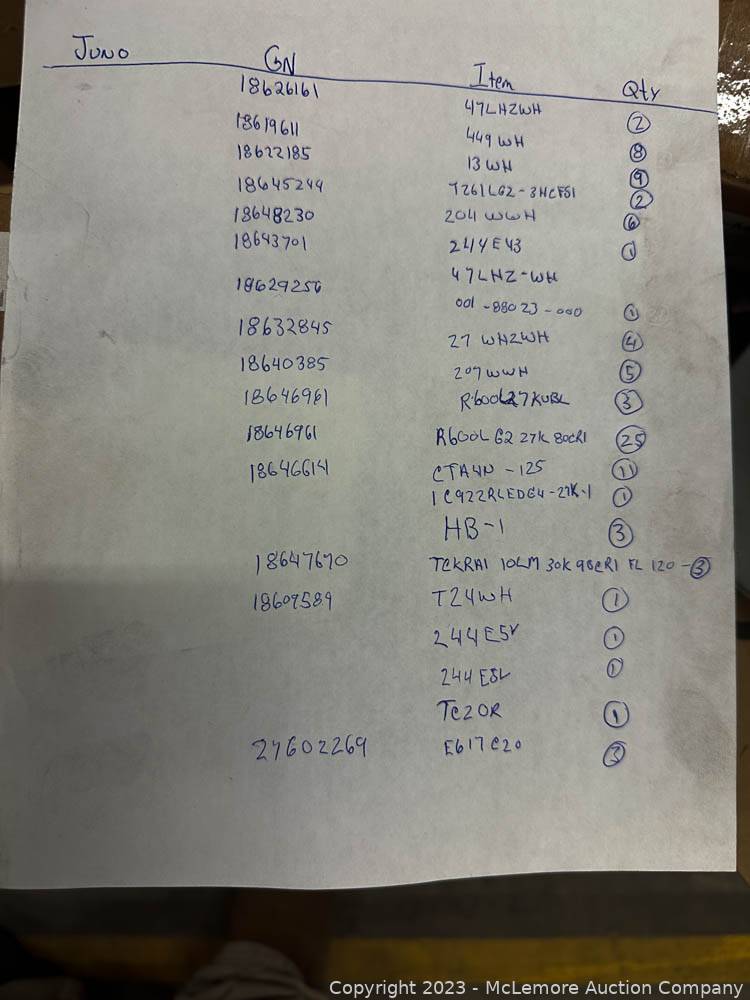 Juno GN Item Qty
18626161 47LHZWH 2
18619611 449 WH 8
18622185 13 WH 9
18645244 2
18648230 204 WWH 6
18643701 244E43 1
47LHZ-WH
18629256 001-88023-000 1
18632845 27 WHZWH 4
18640385 207 WWH 5
18646961 3
18646961 R600L G2 27K 80CRI 25
18646614 CTA4N - 125 11
1
HB-1 3
18647670 10LM 30K 98CRI FL 120 - 3
18609589 T24WH 1
1
1
TC20R 1
27602269 E617C20 3
Copyright 2023 - McLemore Auction Company